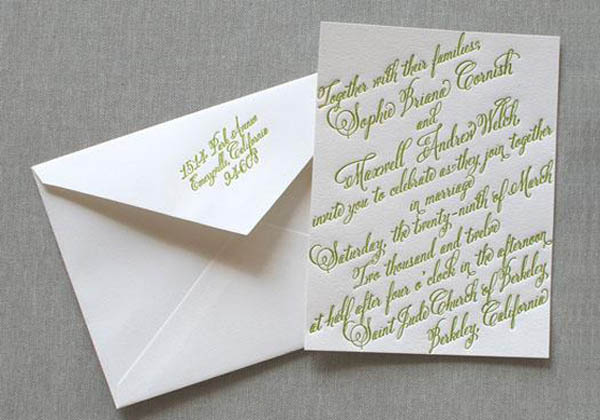 1514 Park Avenue
Emeryville, California
94608
Together with their families,
Sophie Briana Cornish
and
Maxwell Andrew Welch
invite you to celebrate as they join together
in marriage
Saturday, the twenty-ninth of March
Two thousand and twelve
at half after four o'clock in the afternoon
Saint Jude Church of Berkeley,
Berkeley, California